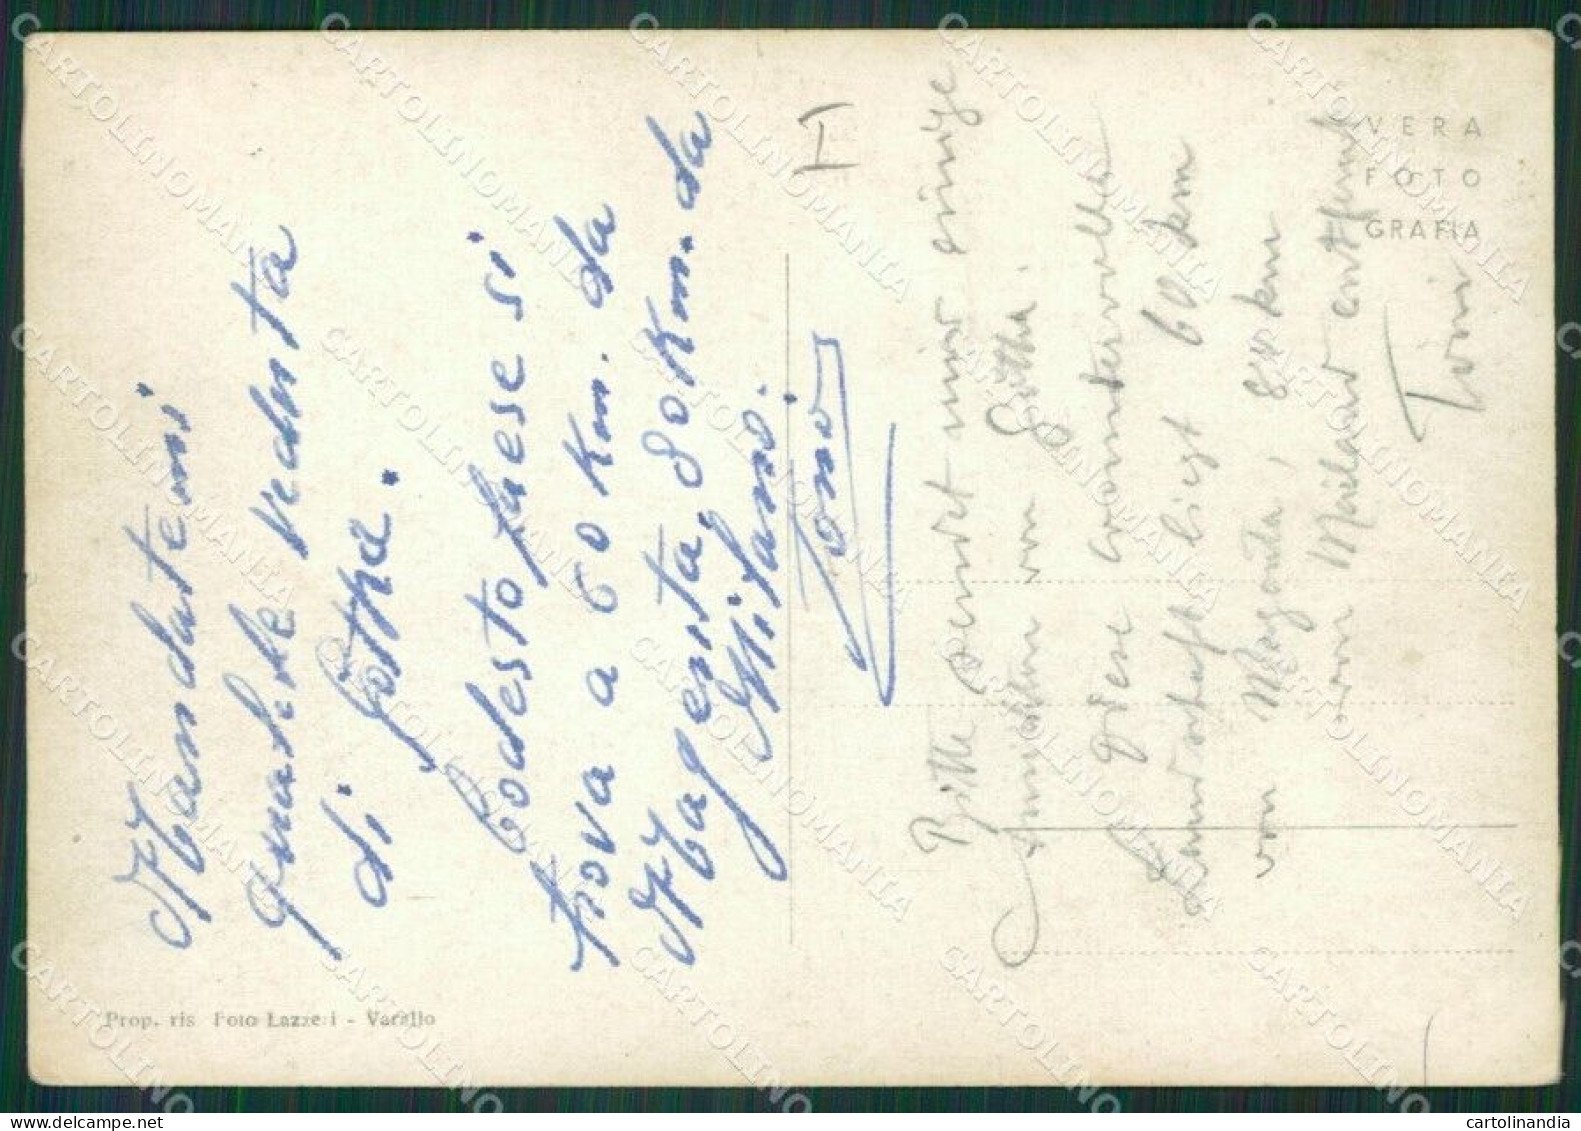 Mandatemi
qualche veduta
di Gotha.
Codesto paese si
trova a 60 Km. da
Magenta, 80 Km. da
Milano.
Tonio
Bitte sendet mir einige
Ansichten von Gotha.
Diese
Landschaft liegt 60 km
von Magenta, 80 km
von Mailand entfernt
Toni
VERA
FOTO
GRAFIA
Prop. ris Foto Lazzeri - Varallo
CARTOLINOMANIA
cartolinandia